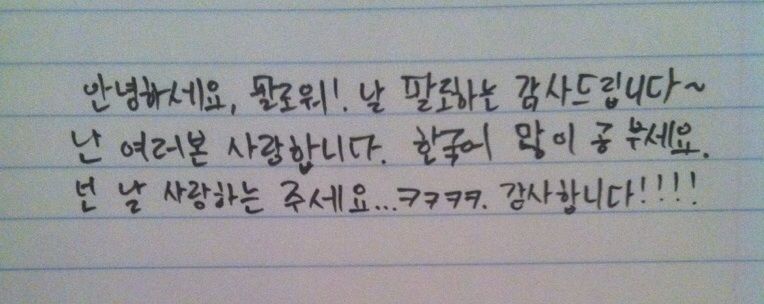 안녕하세요, 팔로워!. 날 팔로하는 감사드립니다~
난 여러본 사랑합니다. 한국어 많이 공부세요.
넌 날 사랑하는 주세요...ㅋㅋㅋㅋ. 감사합니다!!!!